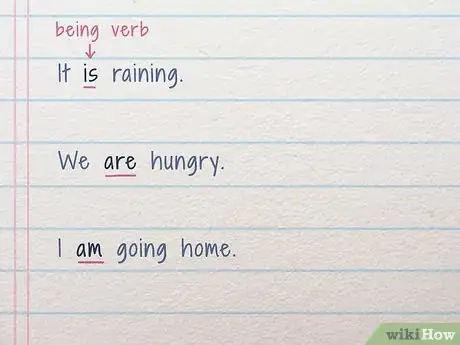 being verb
It is raining.
We are hungry.
I am going home.
wikiHow